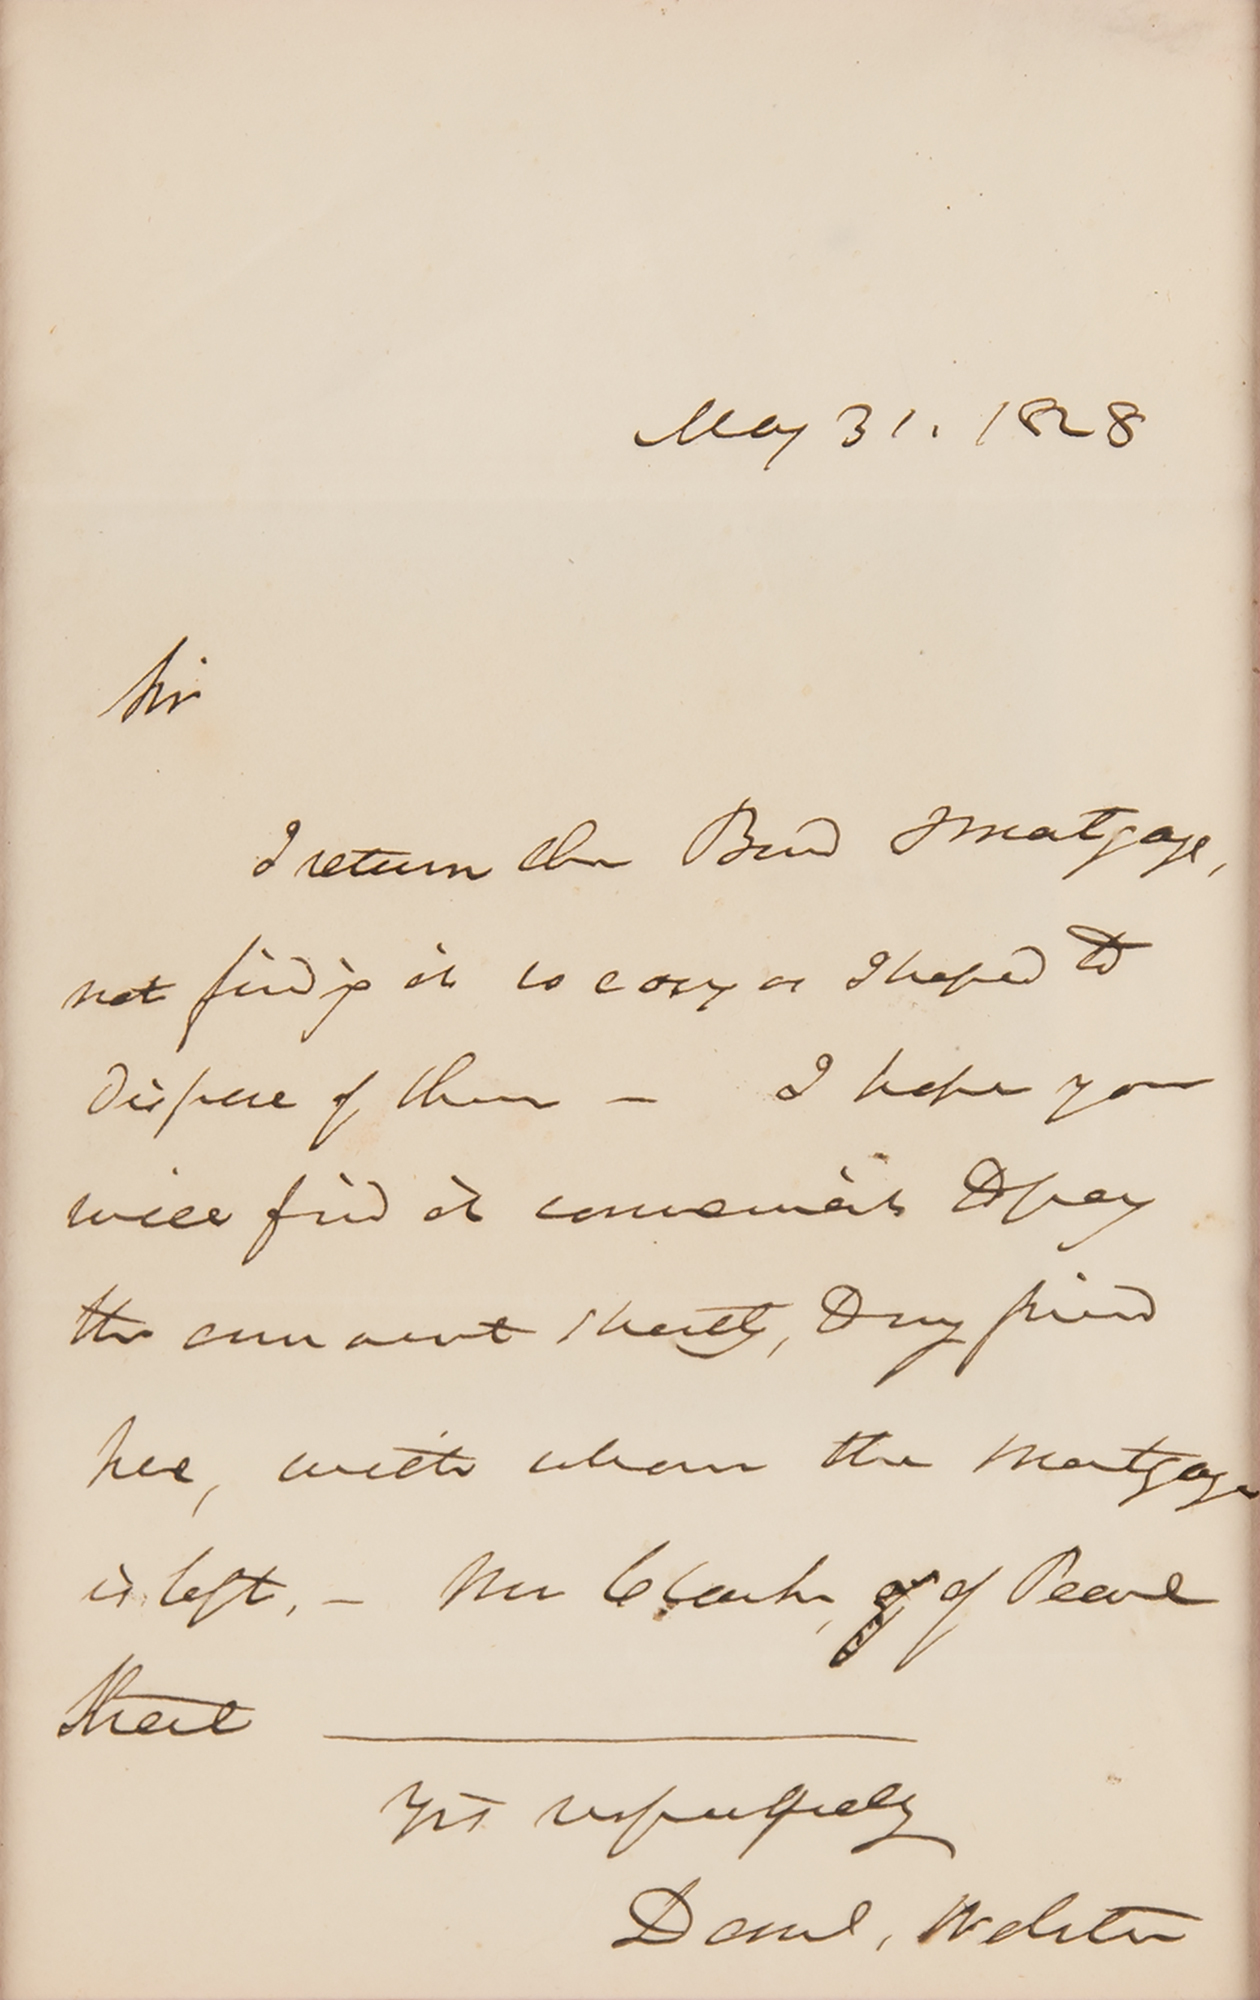 May 31. 1828
Sir
I return the Bond & Mortgage,
not finding it so easy as I hoped to
dispose of them — I hope you
will find it convenient to pay
the amount shortly, to my friend
here, with whom the mortgage
is left. — Mr Clark, of Pearl
Street
Yrs respectfully
Danl. Webster